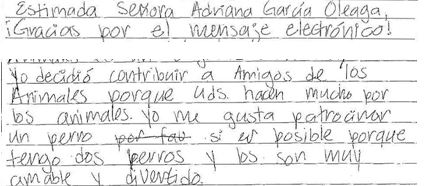 Estimada Señora Adriana García Oleaga,
¡Gracias por el mensaje electrónico!
Yo decidió contribuir a Amigos de los
Animales porque Uds. hacen mucho por
los animales. Yo me gusta patrocinar
un perro por fav si es posible porque
tengo dos perros y los son muy
amable y divertido.